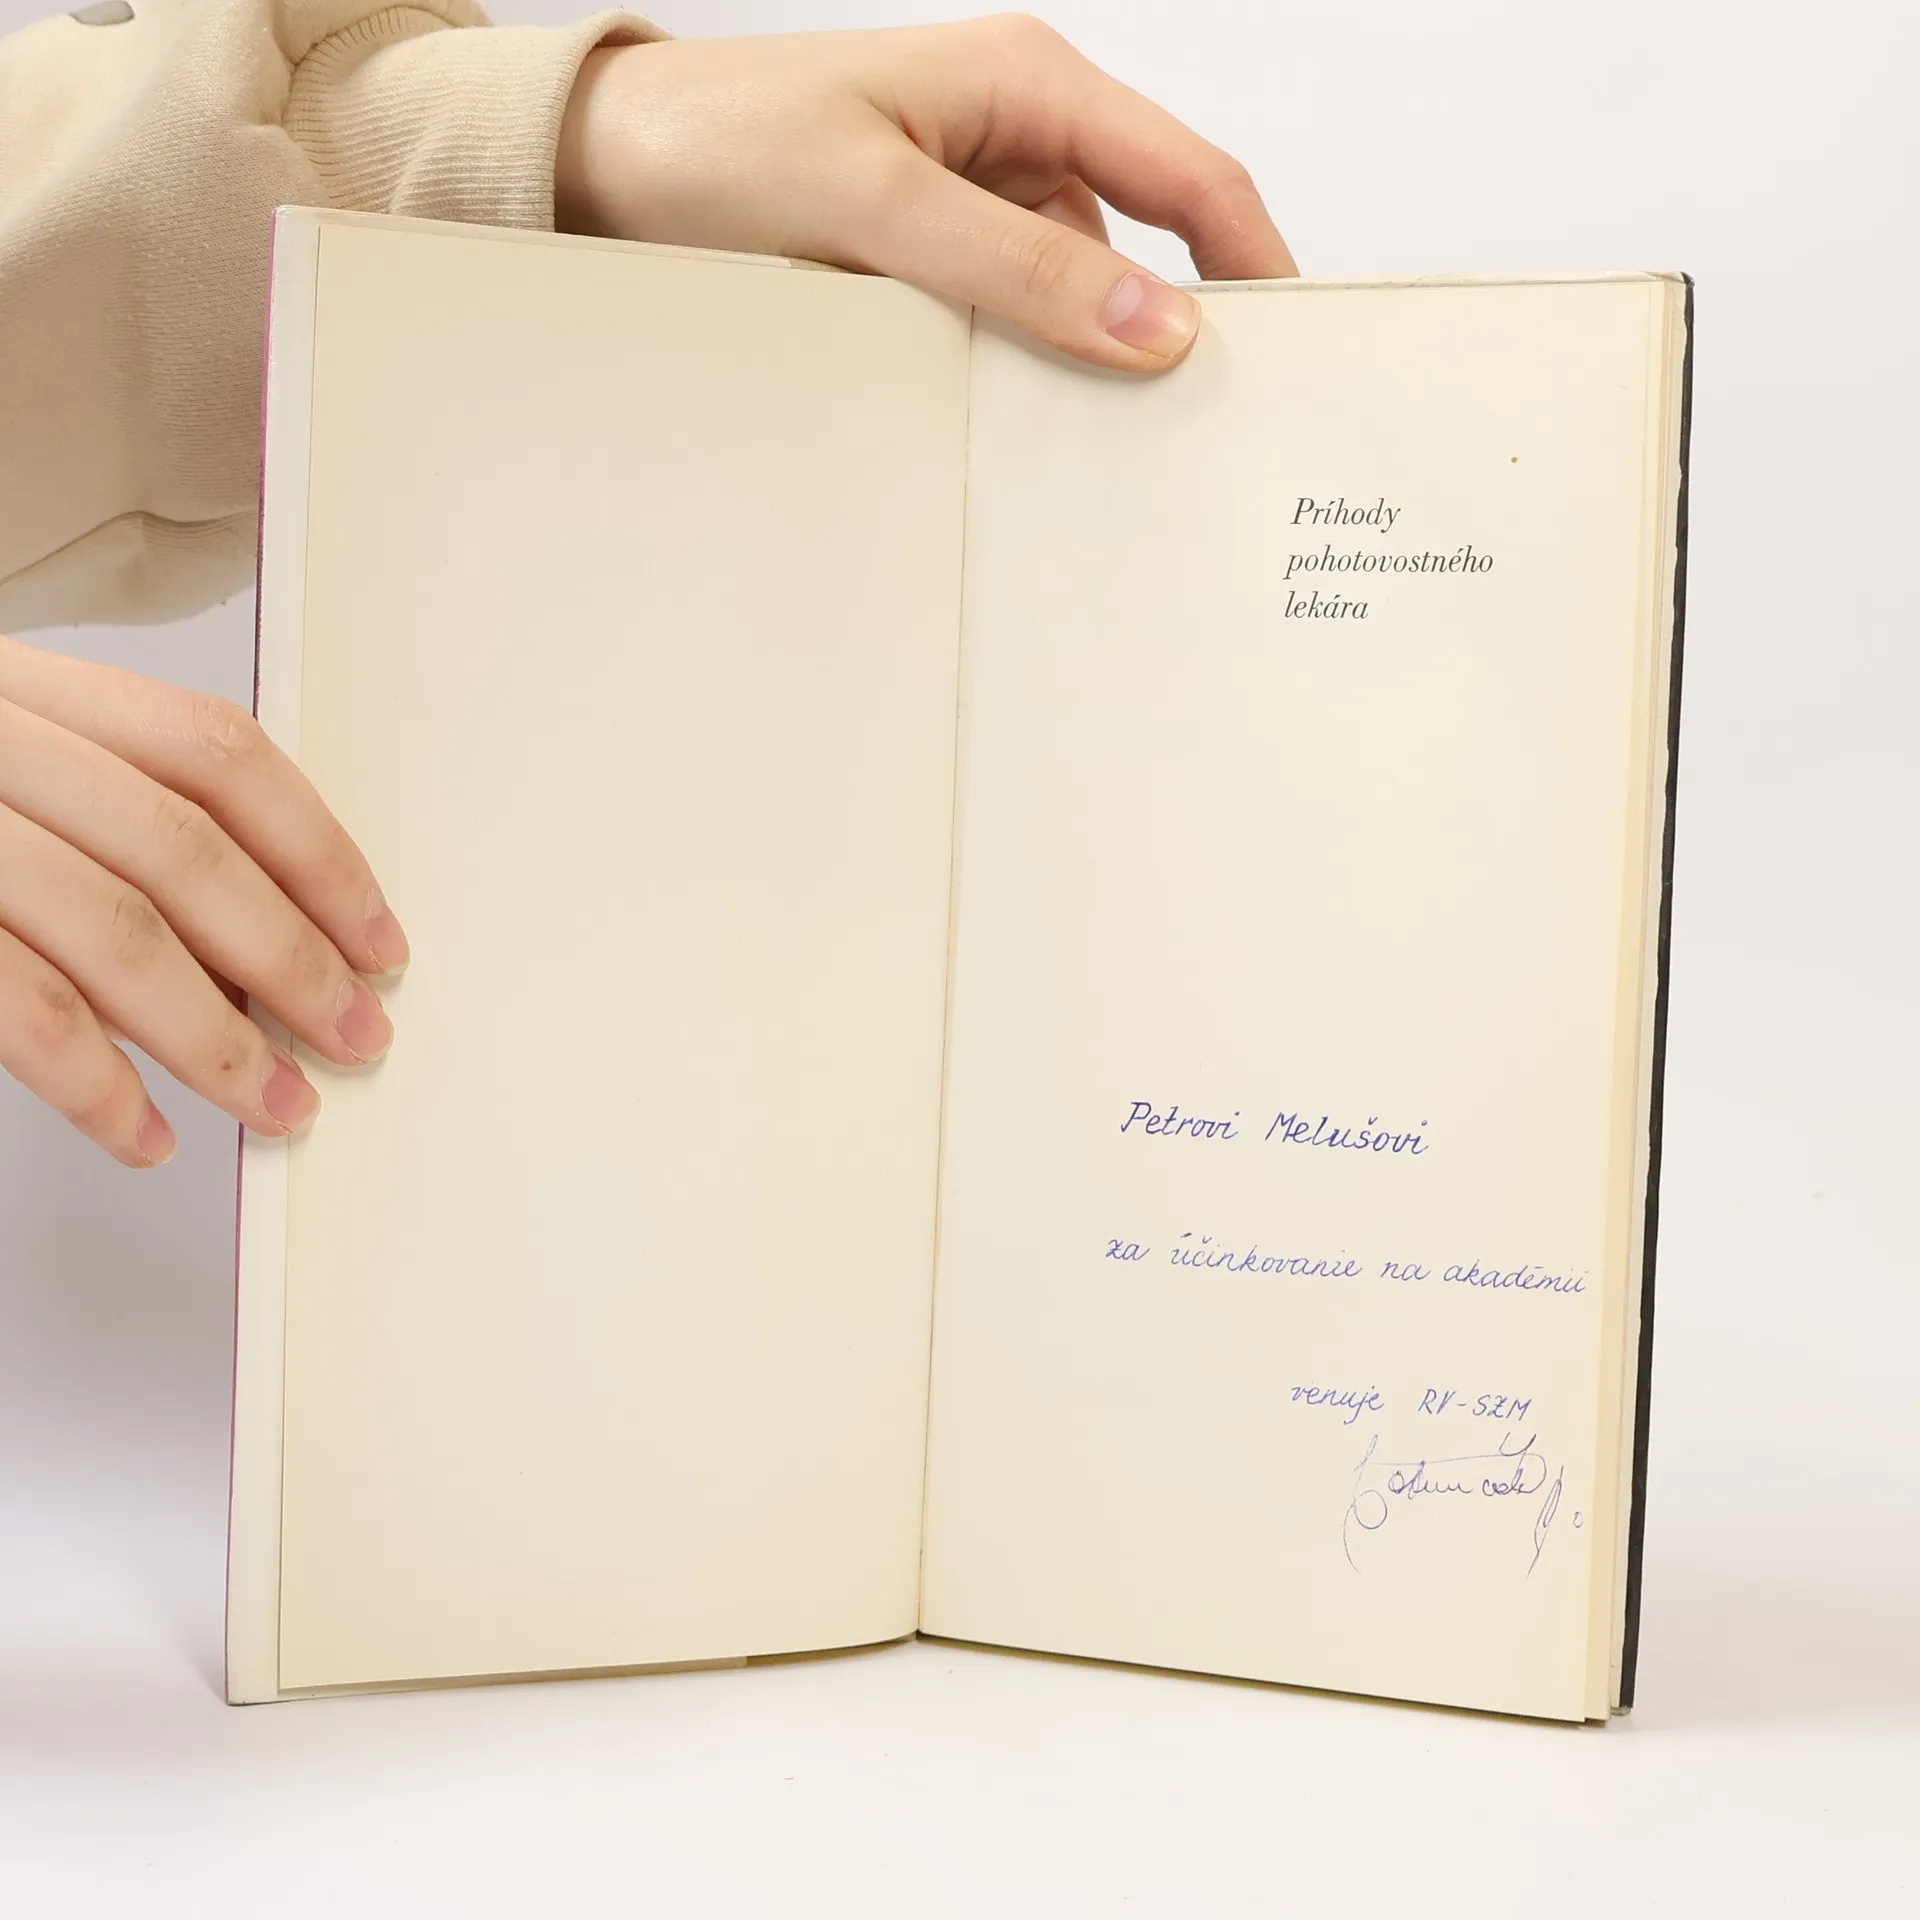 Príhody
pohotovostného
lekára
Petrovi Melušovi
za účinkovanie na akadémii
venuje RV-SZM